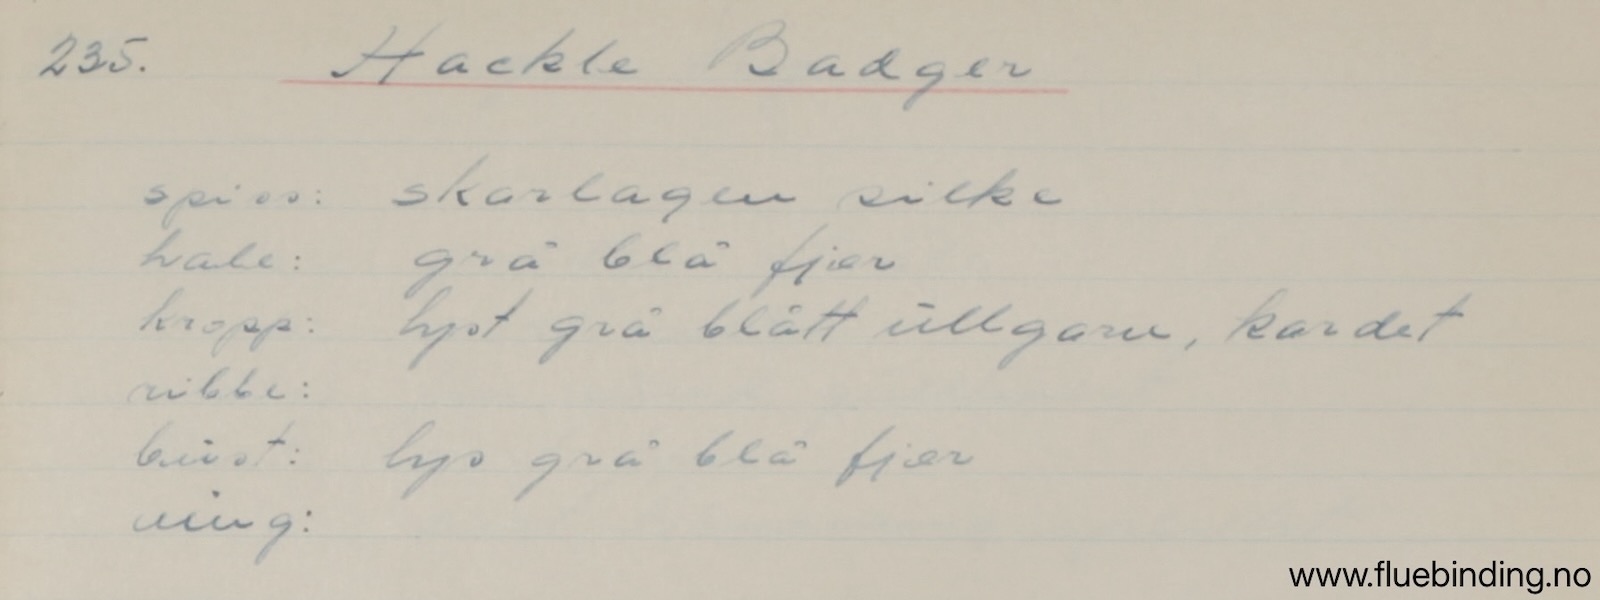 235. Hackle Badger
spiss: skarlagen silke
hale: grå blå fjær
kropp: lyst grå blått ullgarn, kardet
ribbe:
bust: lys grå blå fjær
ving:
www.fluebinding.no